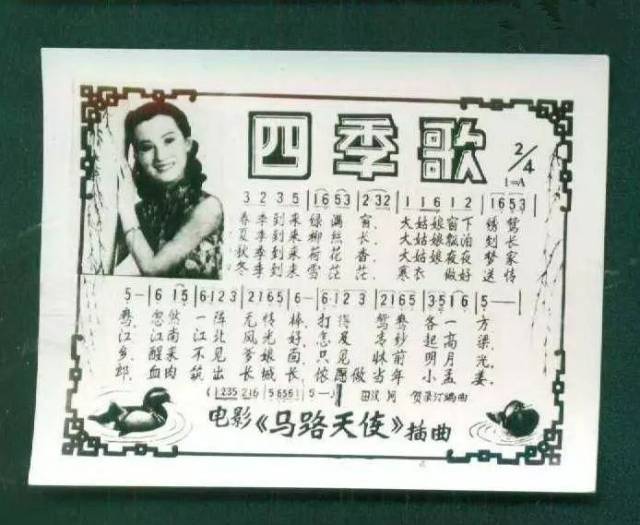 四季歌
2/4
1=A
3 2 3 5 | 1 6 5 3 | 2· 3 2 | 1 1 1 6 1 2 | 1 6 5 3
春季到来绿满窗。大姑娘窗下绣鸳
夏季到来柳丝长。大姑娘飘泊到长
秋季到来荷花香。大姑娘夜夜梦家
冬季到来雪茫茫。寒衣做好送情
5 — | 6 1 5 | 6·1 2 3 | 2 1 6 5 | 6 — | 6·1 2 3 | 2 1 6 5 | 3·5 1 6 | 5 — |
鸯。忽然一阵无情棒。打得鸳鸯各一方
江。江南江北风光好。怎及青纱起高梁。
乡。醒来不见爹娘面。只见床前明月光。
郎。血肉筑出长城长 侬愿做当年小孟姜。
( 1 2 3 5 2 1 6 | 5 6 5 6 1 | 5 — ) 田汉词 贺录汀编曲
电影《马路天使》插曲